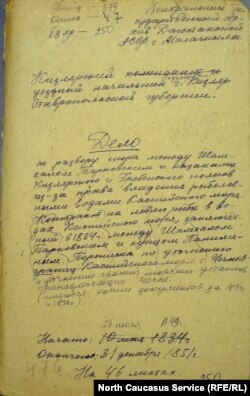 Фонд - 379
Опись - 47
Ед. хр. - 250
Центральный го-
сударственный Ар-
хив Дагестанской
АССР г. Махачкала
Кизлярский комендант и
уездный начальник г. Кизляр
Ставропольской губернии.
Дело
по разбору спора между Шам-
халом Тарковским и казаками
Кизлярского и Гребенского полков
из-за права владения рыболов-
ными водами Каспийского моря.
Контракт на ловлю рыбы в во-
дах Каспийского моря, заключен-
ный в 1834 г. между Шамхалом
Тарковским и купцом
границ Каспийского моря
Начато: 10 мая 1834 г.
Окончено: 31 декабря 1851 г.
На 46 листах
250
North Caucasus Service (RFE/RL)